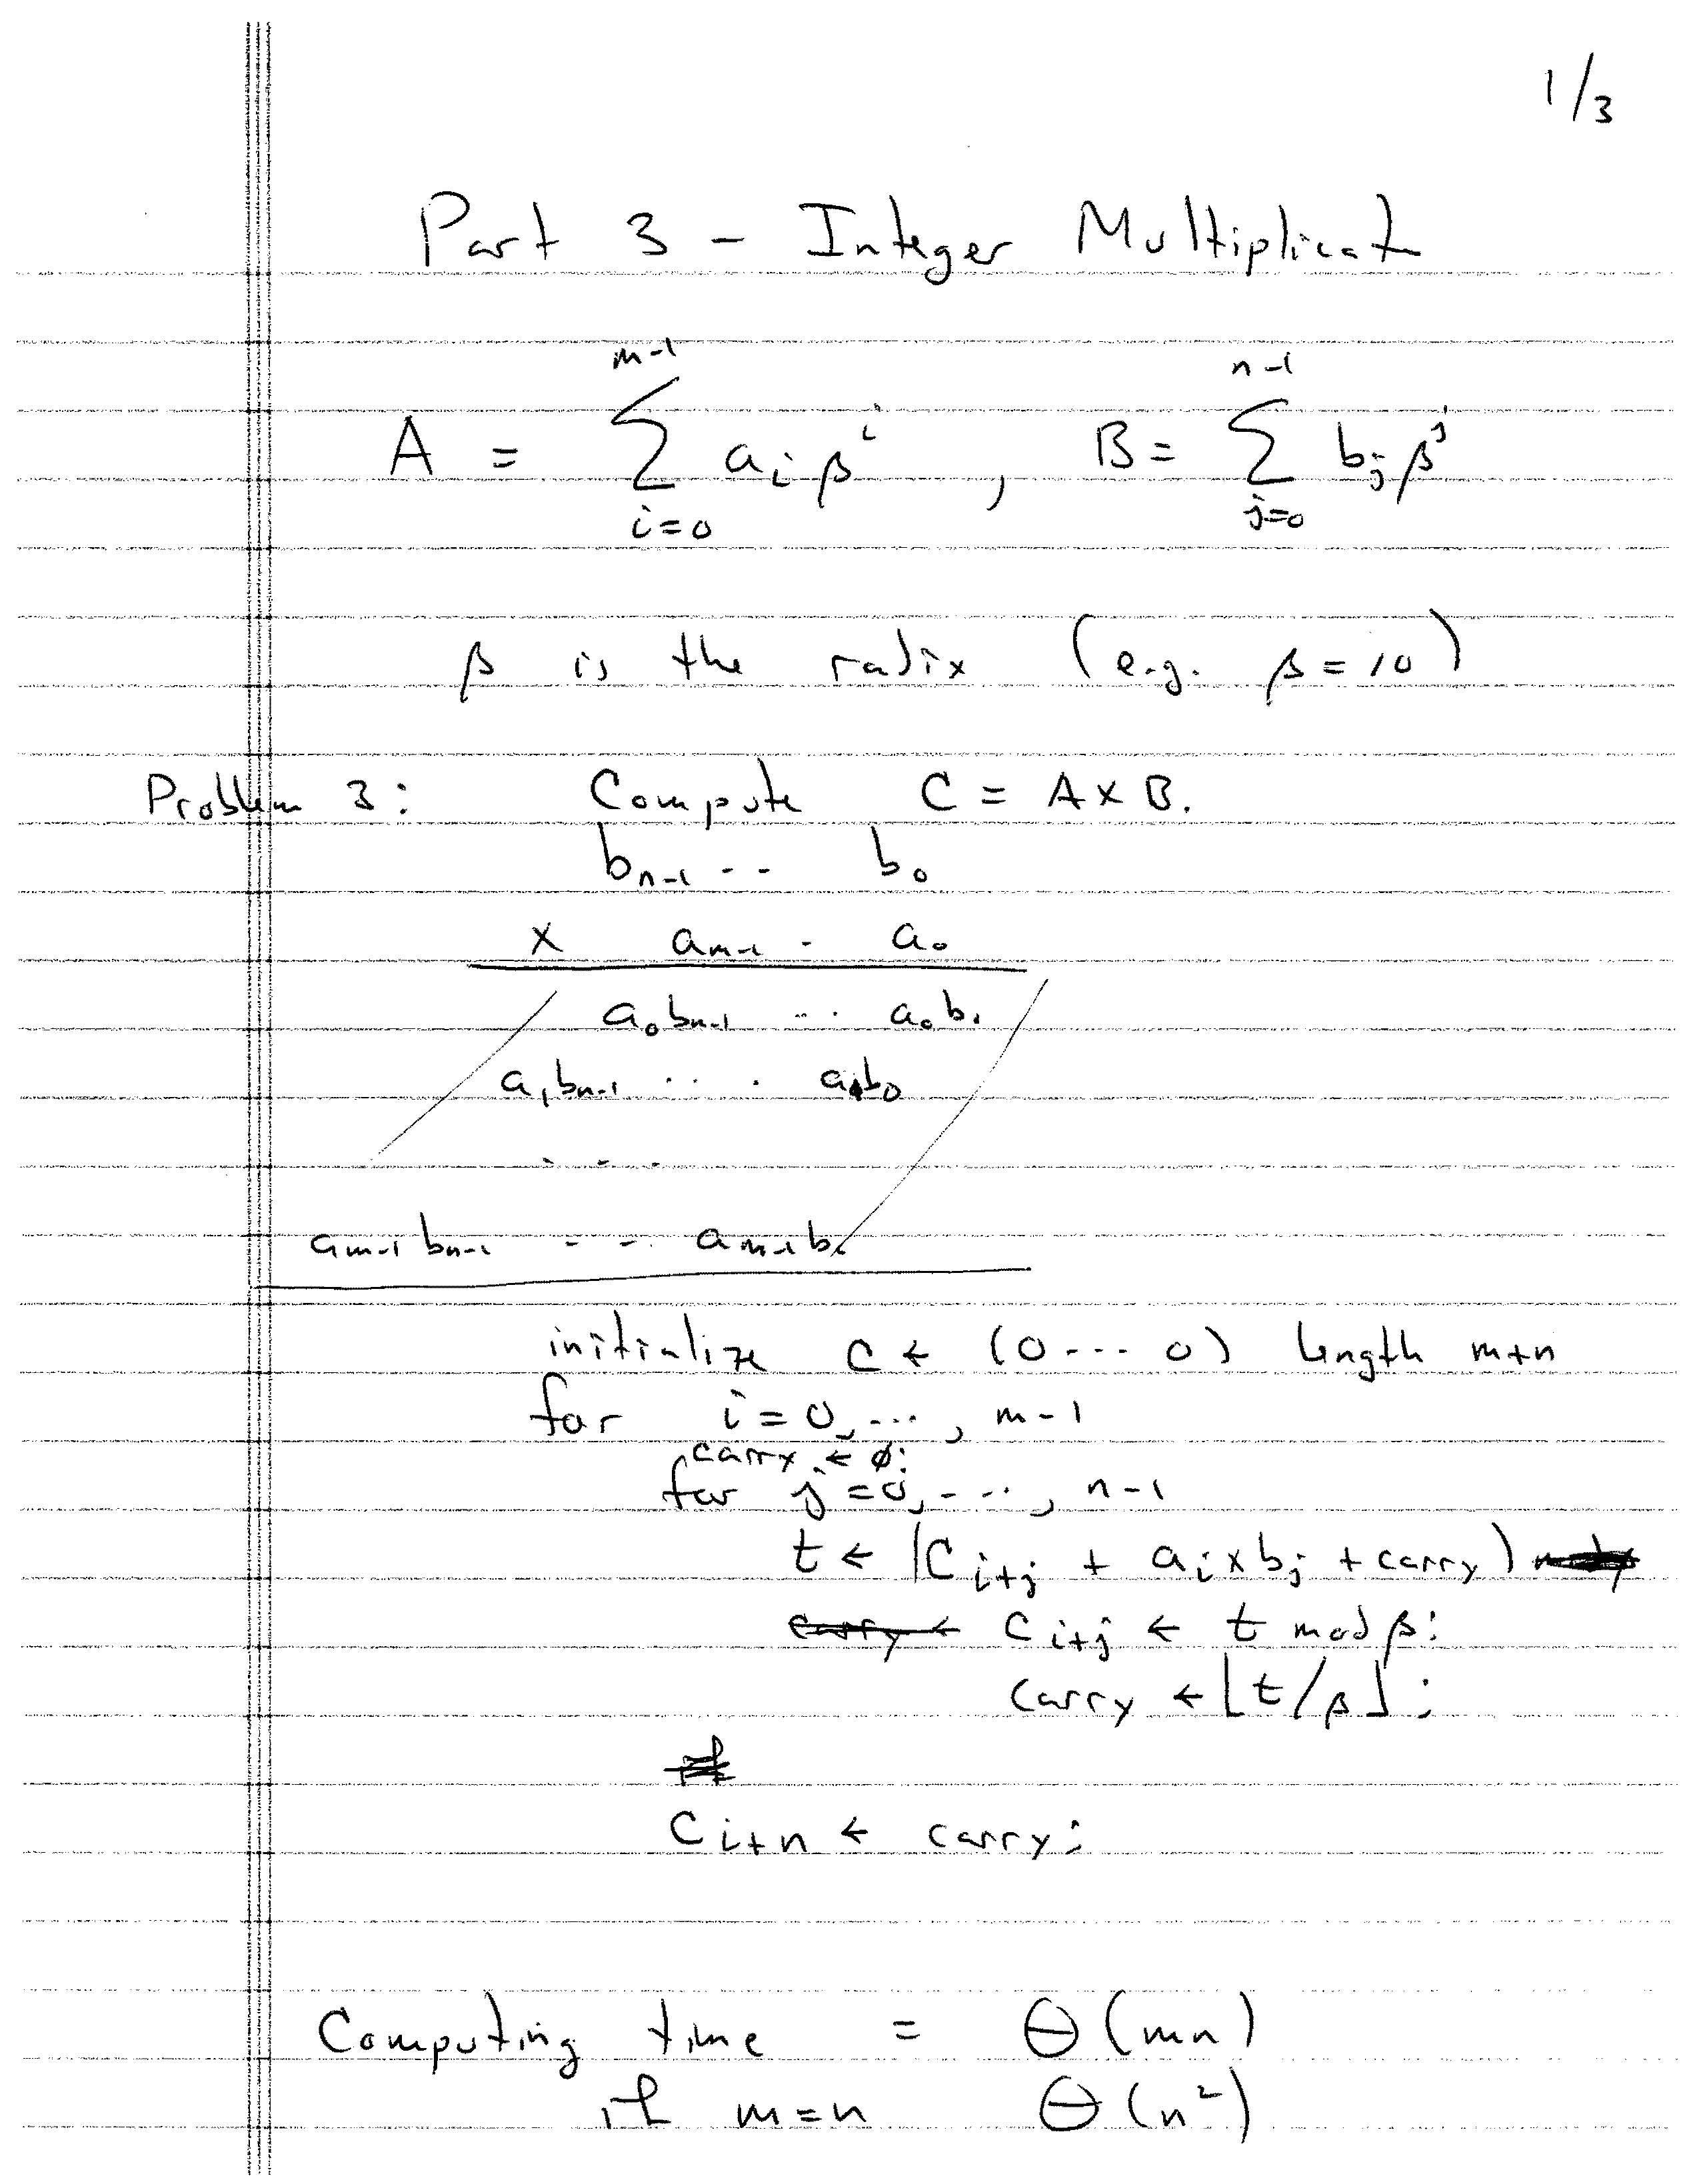 1/3
Part 3 - Integer Multiplicat
A = ∑_{i=0}^{m-1} a_i β^i , B = ∑_{j=0}^{n-1} b_j β^j
β is the radix (e.g. β = 10)
Problem 3: Compute C = A × B.
b_{n-1} -- b_0
× a_{m-1} - a_0
a_0 b_{n-1} ... a_0 b_0
a_1 b_{n-1} ... a_1 b_0
- - -
a_{m-1} b_{n-1} - - - a_{m-1} b_0
initialize C ← (0 --- 0) length m+n
for i = 0, ... , m-1
carry ← 0:
for j = 0, - ... , n-1
t ← (C_{i+j} + a_i × b_j + carry)
carry ← C_{i+j} ← t mod β:
carry ← ⌊t/β⌋ ;
C_{i+n} ← carry;
Computing time = Θ(mn)
if m=n Θ(n²)